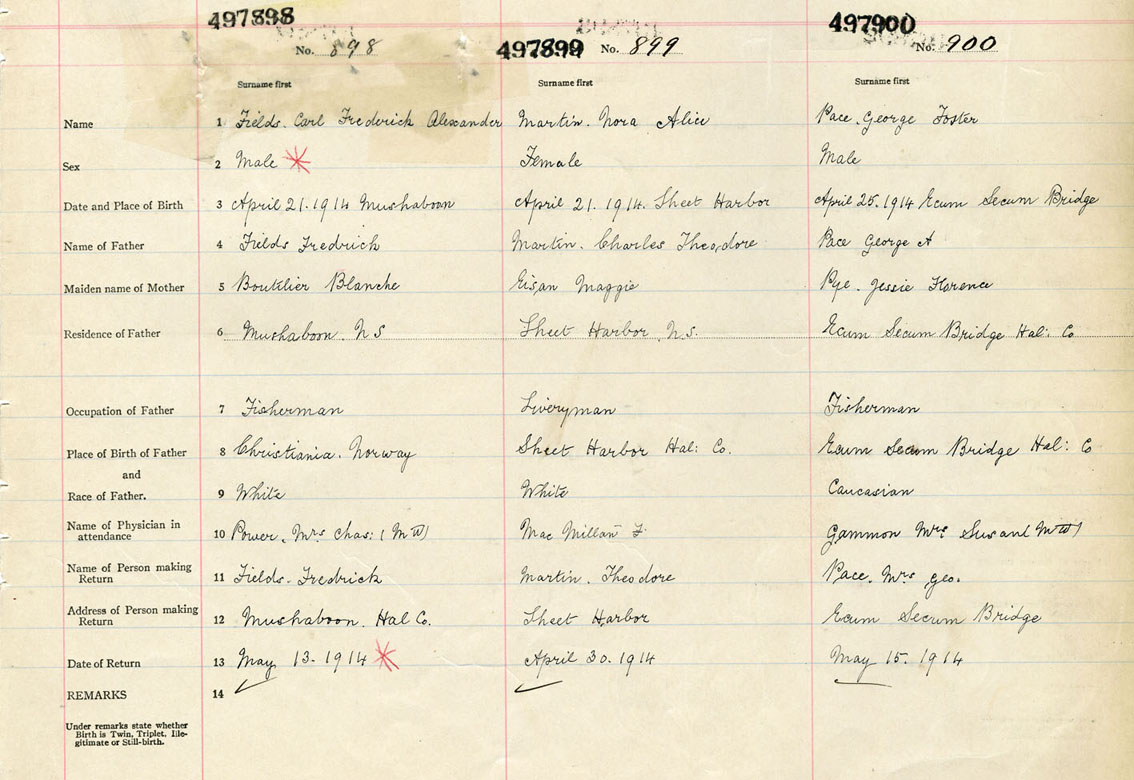 497898 497899 497900
No. 898 No. 899 No. 900
Surname first Surname first Surname first
Name 1 Fields. Carl Frederick Alexander Martin. Nora Alice Pace. George Foster
Sex 2 Male Female Male
Date and Place of Birth 3 April 21. 1914 Mushaboon April 21. 1914. Sheet Harbor April 25. 1914 Ecum Secum Bridge
Name of Father 4 Fields Fredrick Martin. Charles Theodore Pace George A
Maiden name of Mother 5 Boutilier Blanche Eisan Maggie Pye. Jessie Florence
Residence of Father 6 Mushaboon. N S Sheet Harbor. N.S. Ecum Secum Bridge Hal: Co
Occupation of Father 7 Fisherman Liveryman Fisherman
Place of Birth of Father 8 Christiania. Norway Sheet Harbor Hal: Co. Ecum Secum Bridge Hal: C
and
Race of Father. 9 White White Caucasian
Name of Physician in attendance 10 Power. Mrs Chas: (M W) Mac Millan F Gammon Mrs Susan (M W)
Name of Person making Return 11 Fields. Fredrick Martin. Theodore Pace. Mrs Geo.
Address of Person making Return 12 Mushaboon. Hal Co. Sheet Harbor Ecum Secum Bridge
Date of Return 13 May 13. 1914 April 30. 1914 May 15. 1914
REMARKS 14
Under remarks state whether
Birth is Twin, Triplet, Ille-
gitimate or Still-birth.